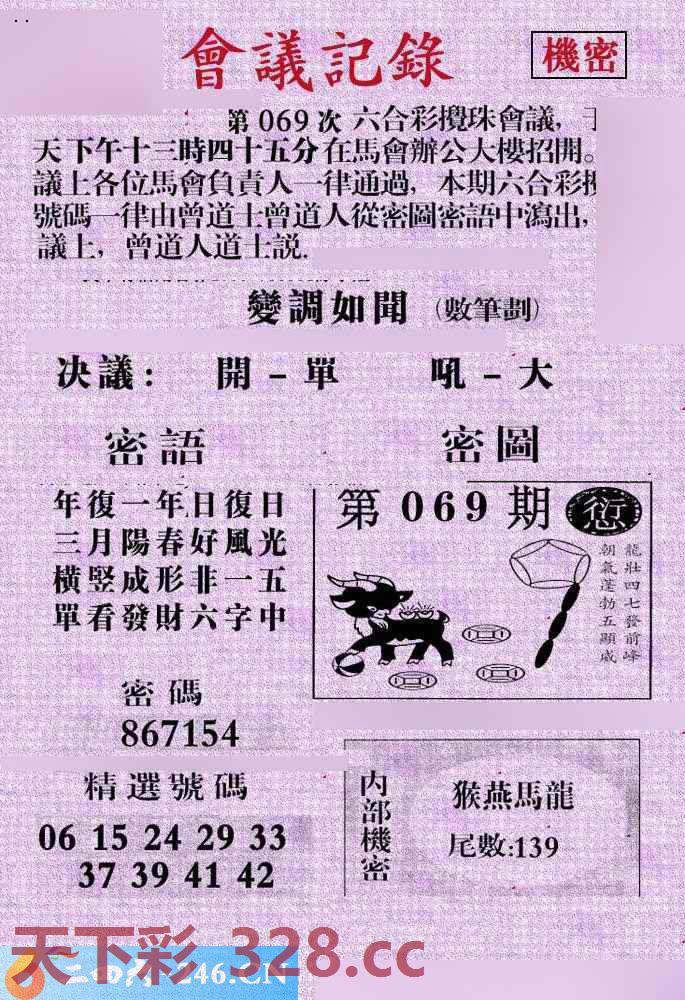 會議記錄
機密
第069次六合彩攪珠會議,
天下午十三時四十五分在馬會辦公大樓招開。
議上各位馬會負責人一律通過, 本期六合彩
號碼一律由曾道士曾道人從密圖密語中瀉出,
議上, 曾道人道士説.
變調如聞 (數筆劃)
决議: 開-單 吼-大
密語
年復一年日復日
三月陽春好風光
橫竪成形非一五
單看發財六字中
密圖
第069期
龍壯四七發前峰
朝氣蓬勃五顯威
密碼
867154
精選號碼
06 15 24 29 33
37 39 41 42
内部機密
猴燕馬龍
尾數:139
天下彩 328.cc
246.CN